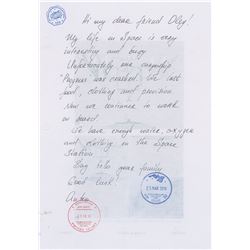 Hi my dear friend Oleg!
My life in Space is very
interesting and busy
Unfortunately one cargoship
"Progress" was crashed. We lost
food, clothing and provision
Now we continue to work
on board.
We have enough water, oxygen
and clothing in the Space
Station
Say hello your family
Good luck!
25 MAR 2016